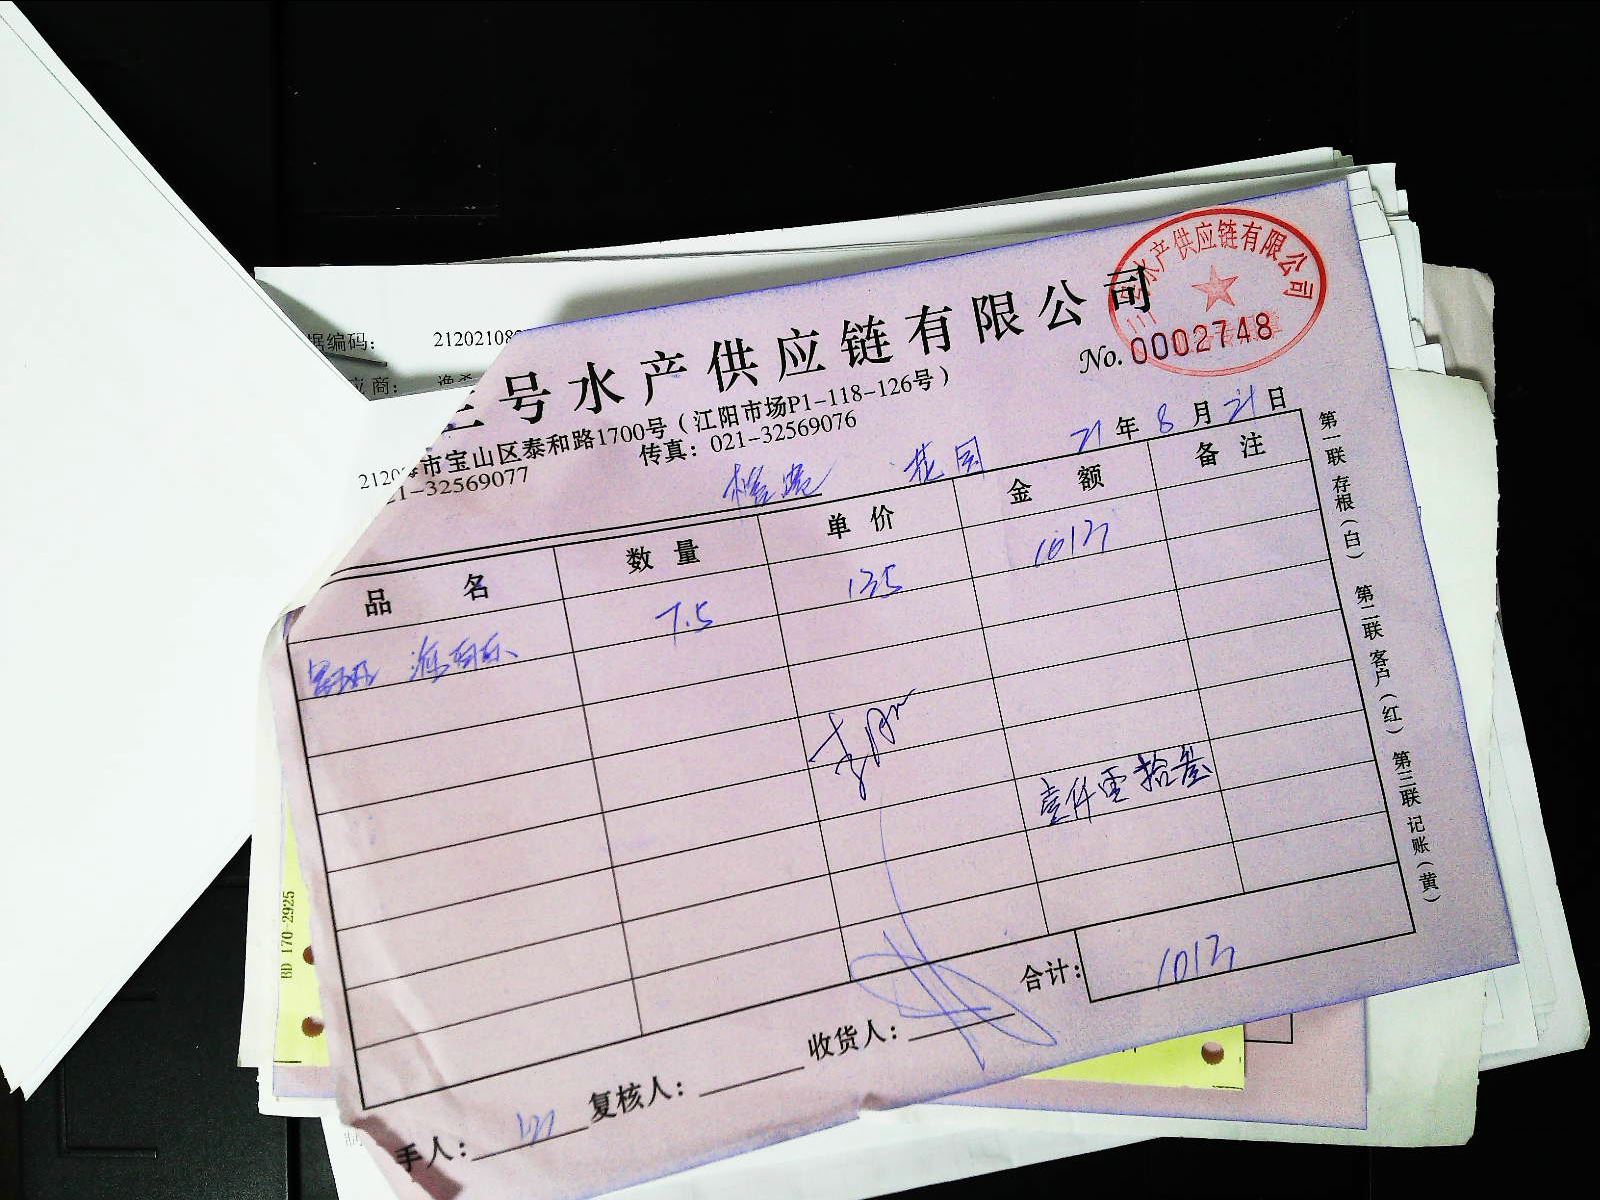 据编码： 212021082
应商：
三号水产供应链有限公司
三号水产供应链有限公司
No. 0002748
2120
市宝山区泰和路1700号（江阳市场P1-118-126号）
21-32569077 传真：021-32569076
花园 21年 8月 21日
品 名 数 量 单 价 金 额 备 注
7.5 135 1013
壹仟零拾叁
合计： 1013
手人： 复核人： 收货人：
第一联 存根（白） 第二联 客户（红） 第三联 记账（黄）
BD 170-2925